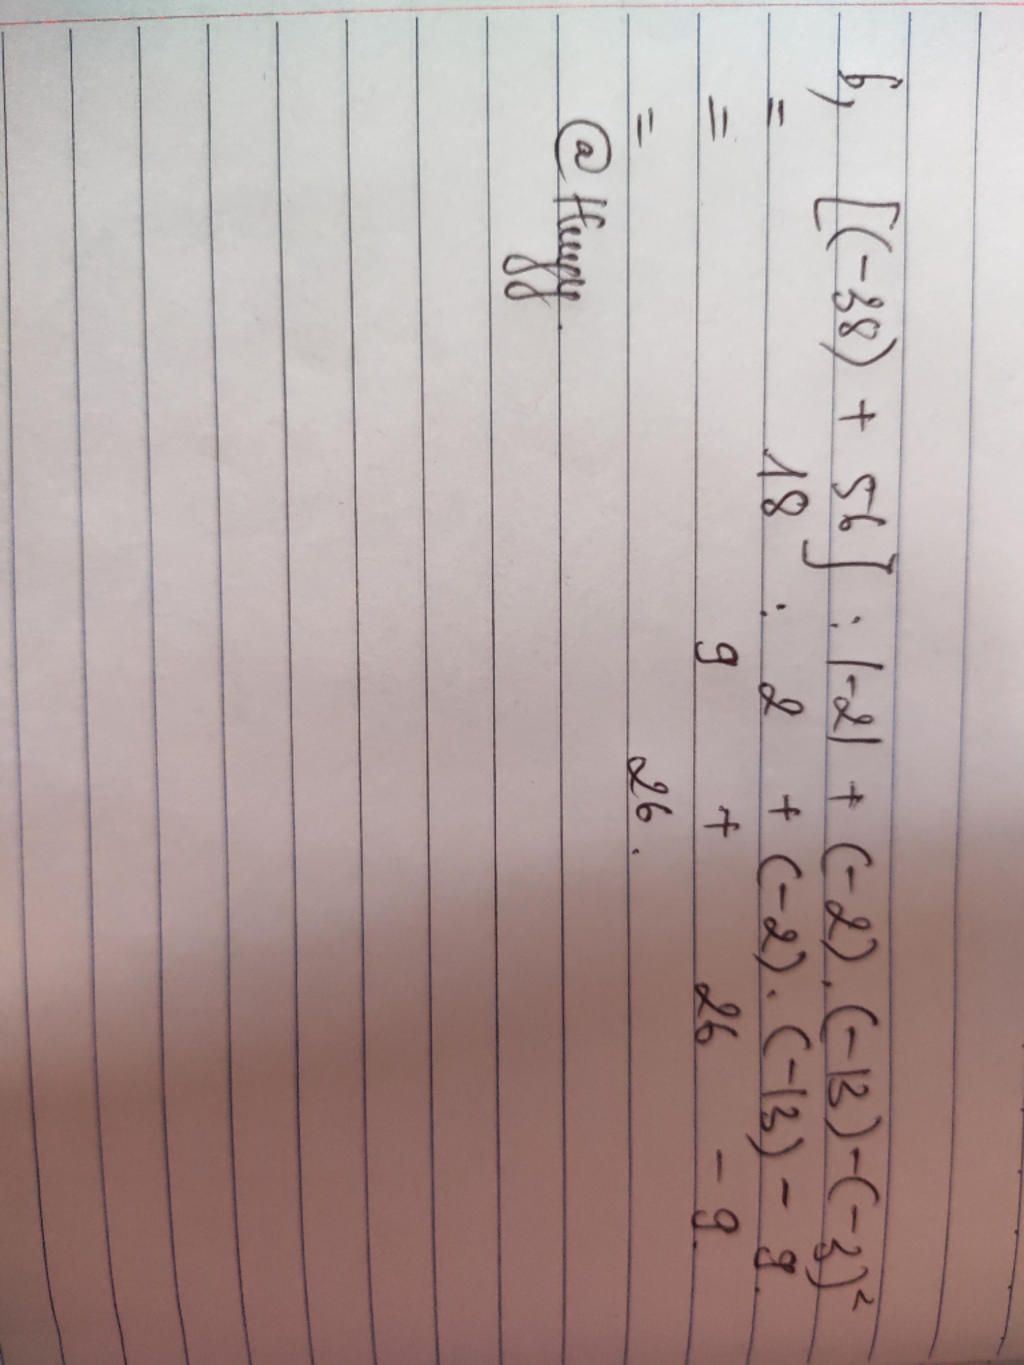 b, [(-38) + 56] : |-2| + (-2).(-13)-(-3)²
= 18 : 2 + (-2).(-13) - 9.
= 9 + 26 - 9.
= 26.